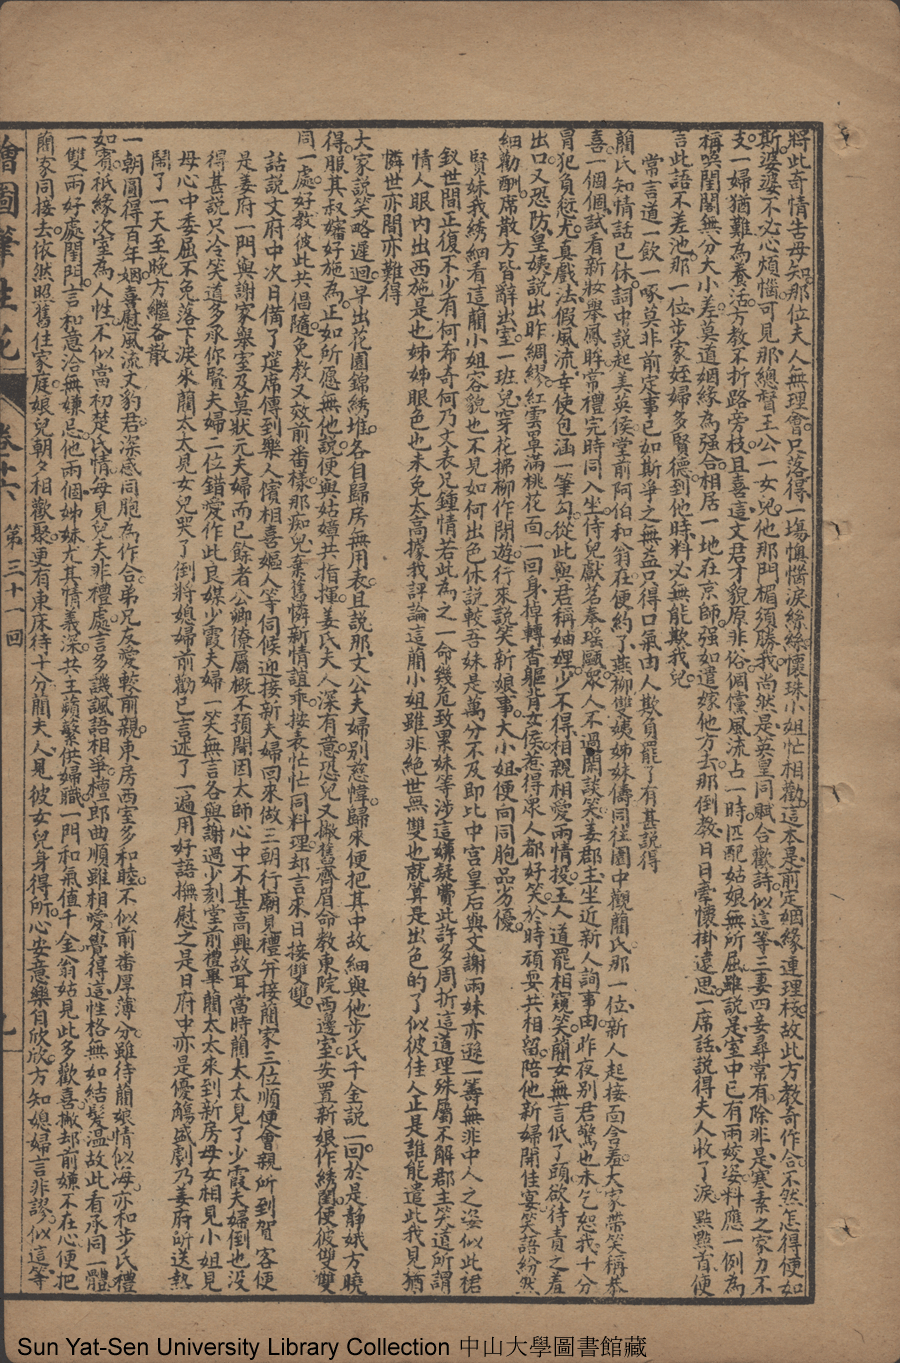 將此奇情舌母知那位夫人無理會只落得一塲懊惱淚絲絲懷珠小姐忙相勸這本是前定姻緣連理枝故此方教奇作合不然怎得便如
斯婆婆不必心煩惱可見那總督王公一女兒他那門楣須勝我尚然是英皇同賦合歡詩似這等三妻四妾尋常有除非是寒素之家力不
支一婦猶難為養活方教不折路旁枝且喜這文君才貌原非俗倜儻風流占一時匹配姑娘無所屈雖說是室中已有兩姣姿料應一例為
稱呉閨閫無分大小差莫道姻緣為强合相居一地在京師强如遣嫁他方去那倒教日日牽懷掛遠思一席話說得夫人收了淚點點首便
言此語不差池那一位步家姪婦多賢德到他時料必無能欺我兒
常言道一飲一啄莫非前定事已如斯爭之無益只得口氣由人欺負罷了有甚說得
藺氏知情話已休詞中說起姜英侯堂前阿伯和翁在便約了燕柳雙姨姊妹儔同徃園中觀藺氏那一位新人起接面含羞大家帶笑稱恭
喜一個個試看新妝舉鳳眸常禮完時同入坐侍兒獻茗奉瑶甌眾人不過閑談笑姜郡主坐近新人詢事由昨夜别君驚也未乞恕我十分
冒犯負愆尤真戲法假風流幸使包涵一筆勾從此與君稱妯娌少不得相親相愛兩情投玉人道罷相窺笑藺女無言低了頭欲待責之羞
出口又恐防皇姨說出昨綢繆紅雲罩滿桃花面一回身掉轉香軀背女侯惹得眾人都好笑於時頑耍共相留陪他新婦開佳宴笑語紛然
細勸酬席散方皆辭出室一班兒穿花拂柳作閑遊行來說笑新娘事大小姐便向同胞品劣優
賢妹我綉細看這藺小姐容貌也不見如何出色休說較吾妹是萬分不及即比中宮皇后與文謝兩妹亦遜一籌無非中人之姿似此裙
釵世間正復不少有何希奇何乃文表兄鍾情若此為之一命幾危致累妹等涉這嫌疑費此許多周折這道理殊屬不解郡主笑道所謂
情人眼內出西施是也姊姊眼色也未免太高據我評論這藺小姐雖非絕世無雙也就算是出色的了似彼佳人正是誰能遣此我見猶
憐世亦間亦難得
大家說笑略遲迴早出花園錦綉堆各自歸房無用表且說那文公夫婦别慈幃歸來便把其中故細與他步氏千金說一回於是静娥方曉
得服其叔嬸好施為正如所愿無他說便與姑嬸共指揮姜氏夫人深有意恐兒又撇舊齊眉命教東院西邊室安置新娘作綉閨便彼雙雙
同一處好教彼此共倡隨免教又效前畨樣那痴兒棄舊憐新情誼乖接表忙忙同料理却言來日接雙雙
話說文府中次日備了筵席傳到樂人儐相喜嫗人等伺候迎接新夫婦回來做三朝行廟見禮并接藺家三位順便會親所到賀客便
是姜府一門與謝家舉室及莫狀元夫婦而已餘者公卿僚屬概不預聞因太師心中不甚高興故耳當時藺太太見了少霞夫婦倒也没
得甚說只冷笑道多承你賢夫婦二位錯愛作此良媒少霞夫婦一笑無言各與謝過少刻堂前禮畢藺太太來到新房母女相見小姐見
母心中委屈不免落下淚來藺太太見女兒哭了倒將媳婦前勸已言述了一遍用好語撫慰之是日府中亦是優觴盛劇乃姜府所送熱
鬧了一天至晚方繼各散
一朝圓得百年姻喜慰風流文豹君深感同胞為作合弟兄友愛較前親東房西室多和睦不似前畨厚薄分雖待藺娘情似海亦和步氏禮
如賓祇緣次室為人性不似當初楚氏情每見兒夫非禮處言多譏諷語相爭檀郎曲順雖相愛覺得這性格無如結髪温故此看承同一體
一雙兩好處閨門言和意洽無嫌忌他兩個姊妹尤其情義深共主蘋蘩供婦職一門和氣值千金翁姑見此多歡喜撇却前嫌不在心便把
藺家同接去依然照舊住家庭娘兒朝夕相歡聚更有東床待十分藺夫人見彼女兒身得所心安意樂自欣欣方知媳婦言非謬似這等
繪圖筆生花 卷十六 第三十一回 九
Sun Yat-Sen University Library Collection 中山大學圖書館藏